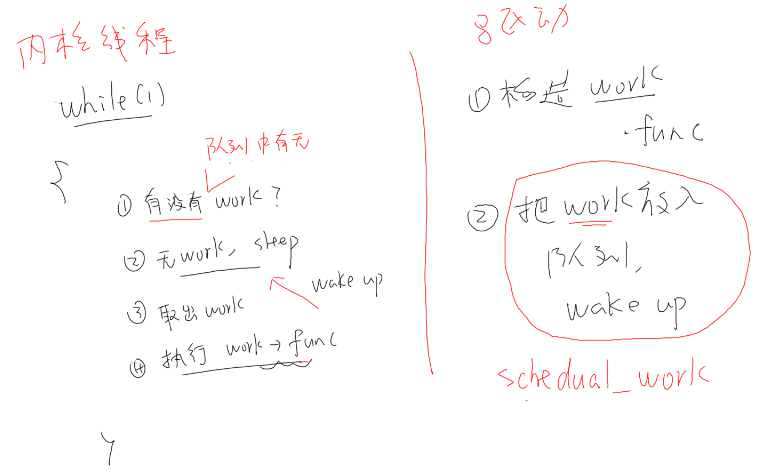 内核线程
while(1)
{
队列中有无
① 有没有 work?
② 无work, sleep
wake up
③ 取出 work
④ 执行 work→func
}
驱动
① 构造 work
.func
② 把work放入
队列,
wake up
schedual_work